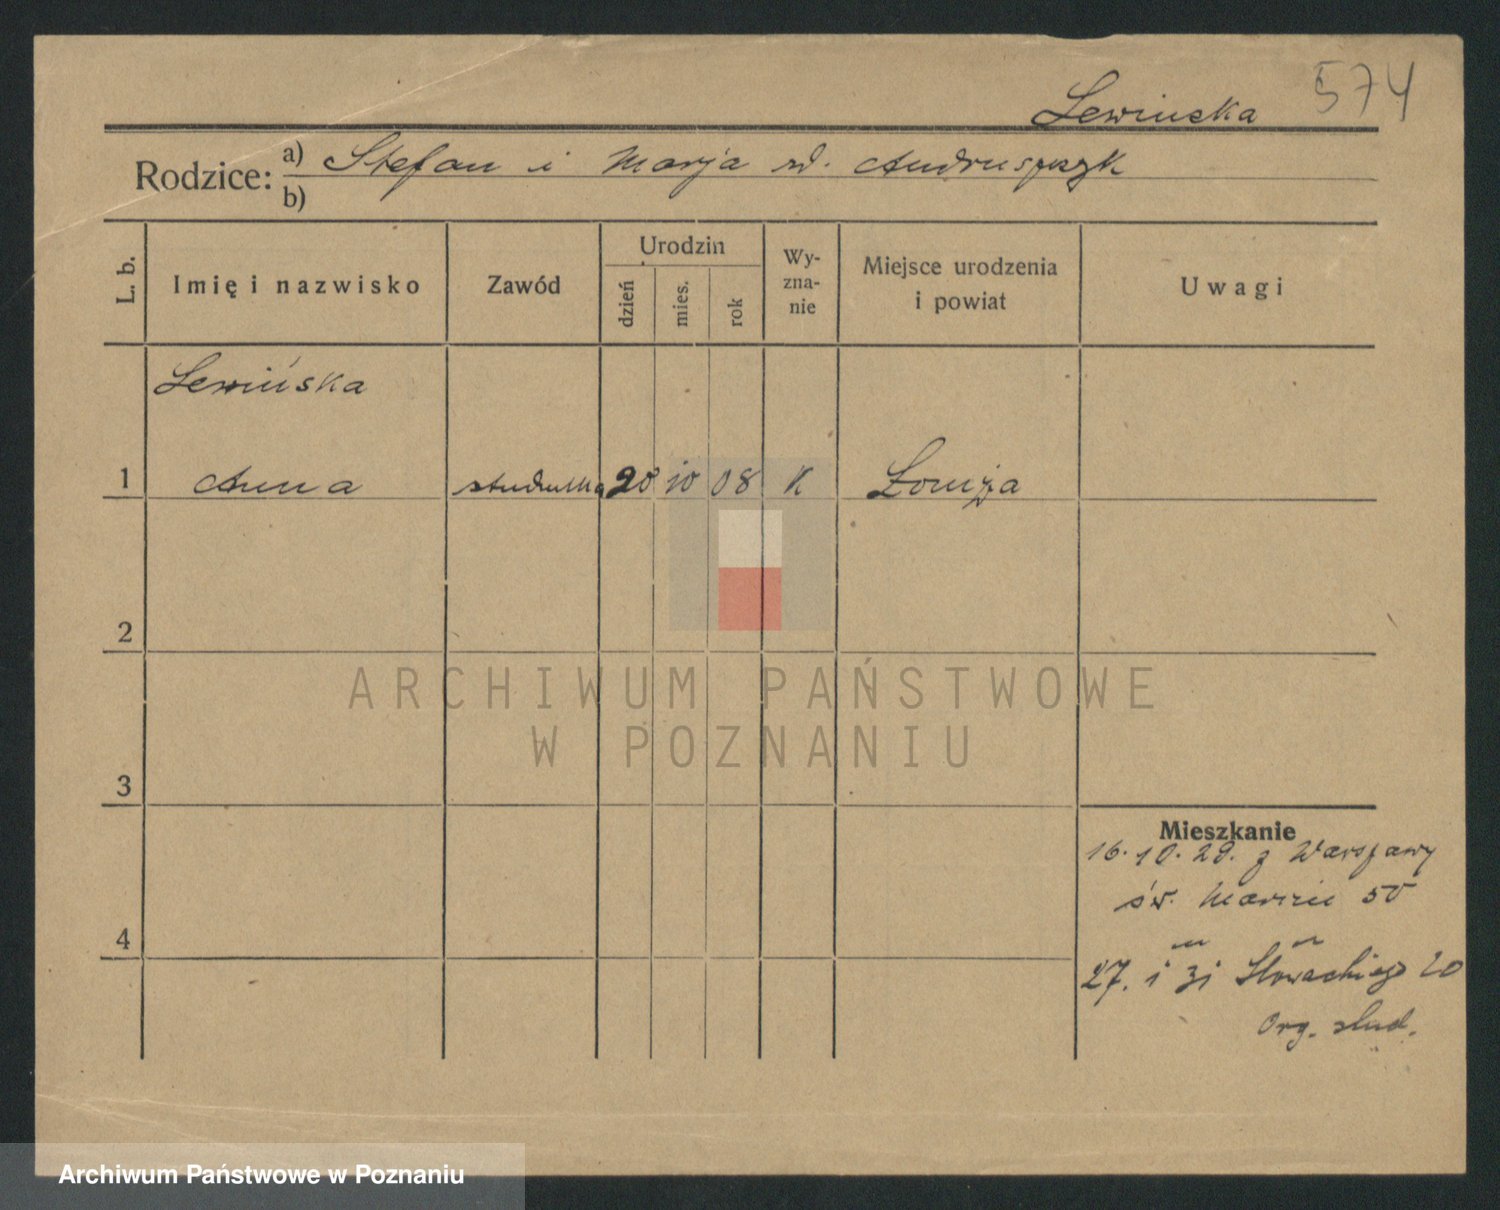 Lewinska 574
Rodzice: a) Stefan i Marja zd. Andruszczyk
b)
L. b.
Imię i nazwisko
Zawód
Urodzin
dzień
mies.
rok
Wy-
zna-
nie
Miejsce urodzenia
i powiat
Uwagi
Lewińska
1 Anna studentka 20 10 08 K Łomża
2
3
4
Mieszkanie
16.10.29. z Warszawy
św. Marcin 50
27. i 31 Słowackiego 20
Org. stud.
ARCHIWUM PAŃSTWOWE
W POZNANIU
Archiwum Państwowe w Poznaniu